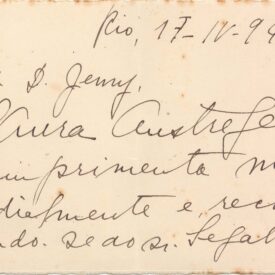 Rio, 17-IV-94
D Jenny,
Laura Austreg
cumprimenta m
dialmente e rec
ndo. sedo sr. Segal